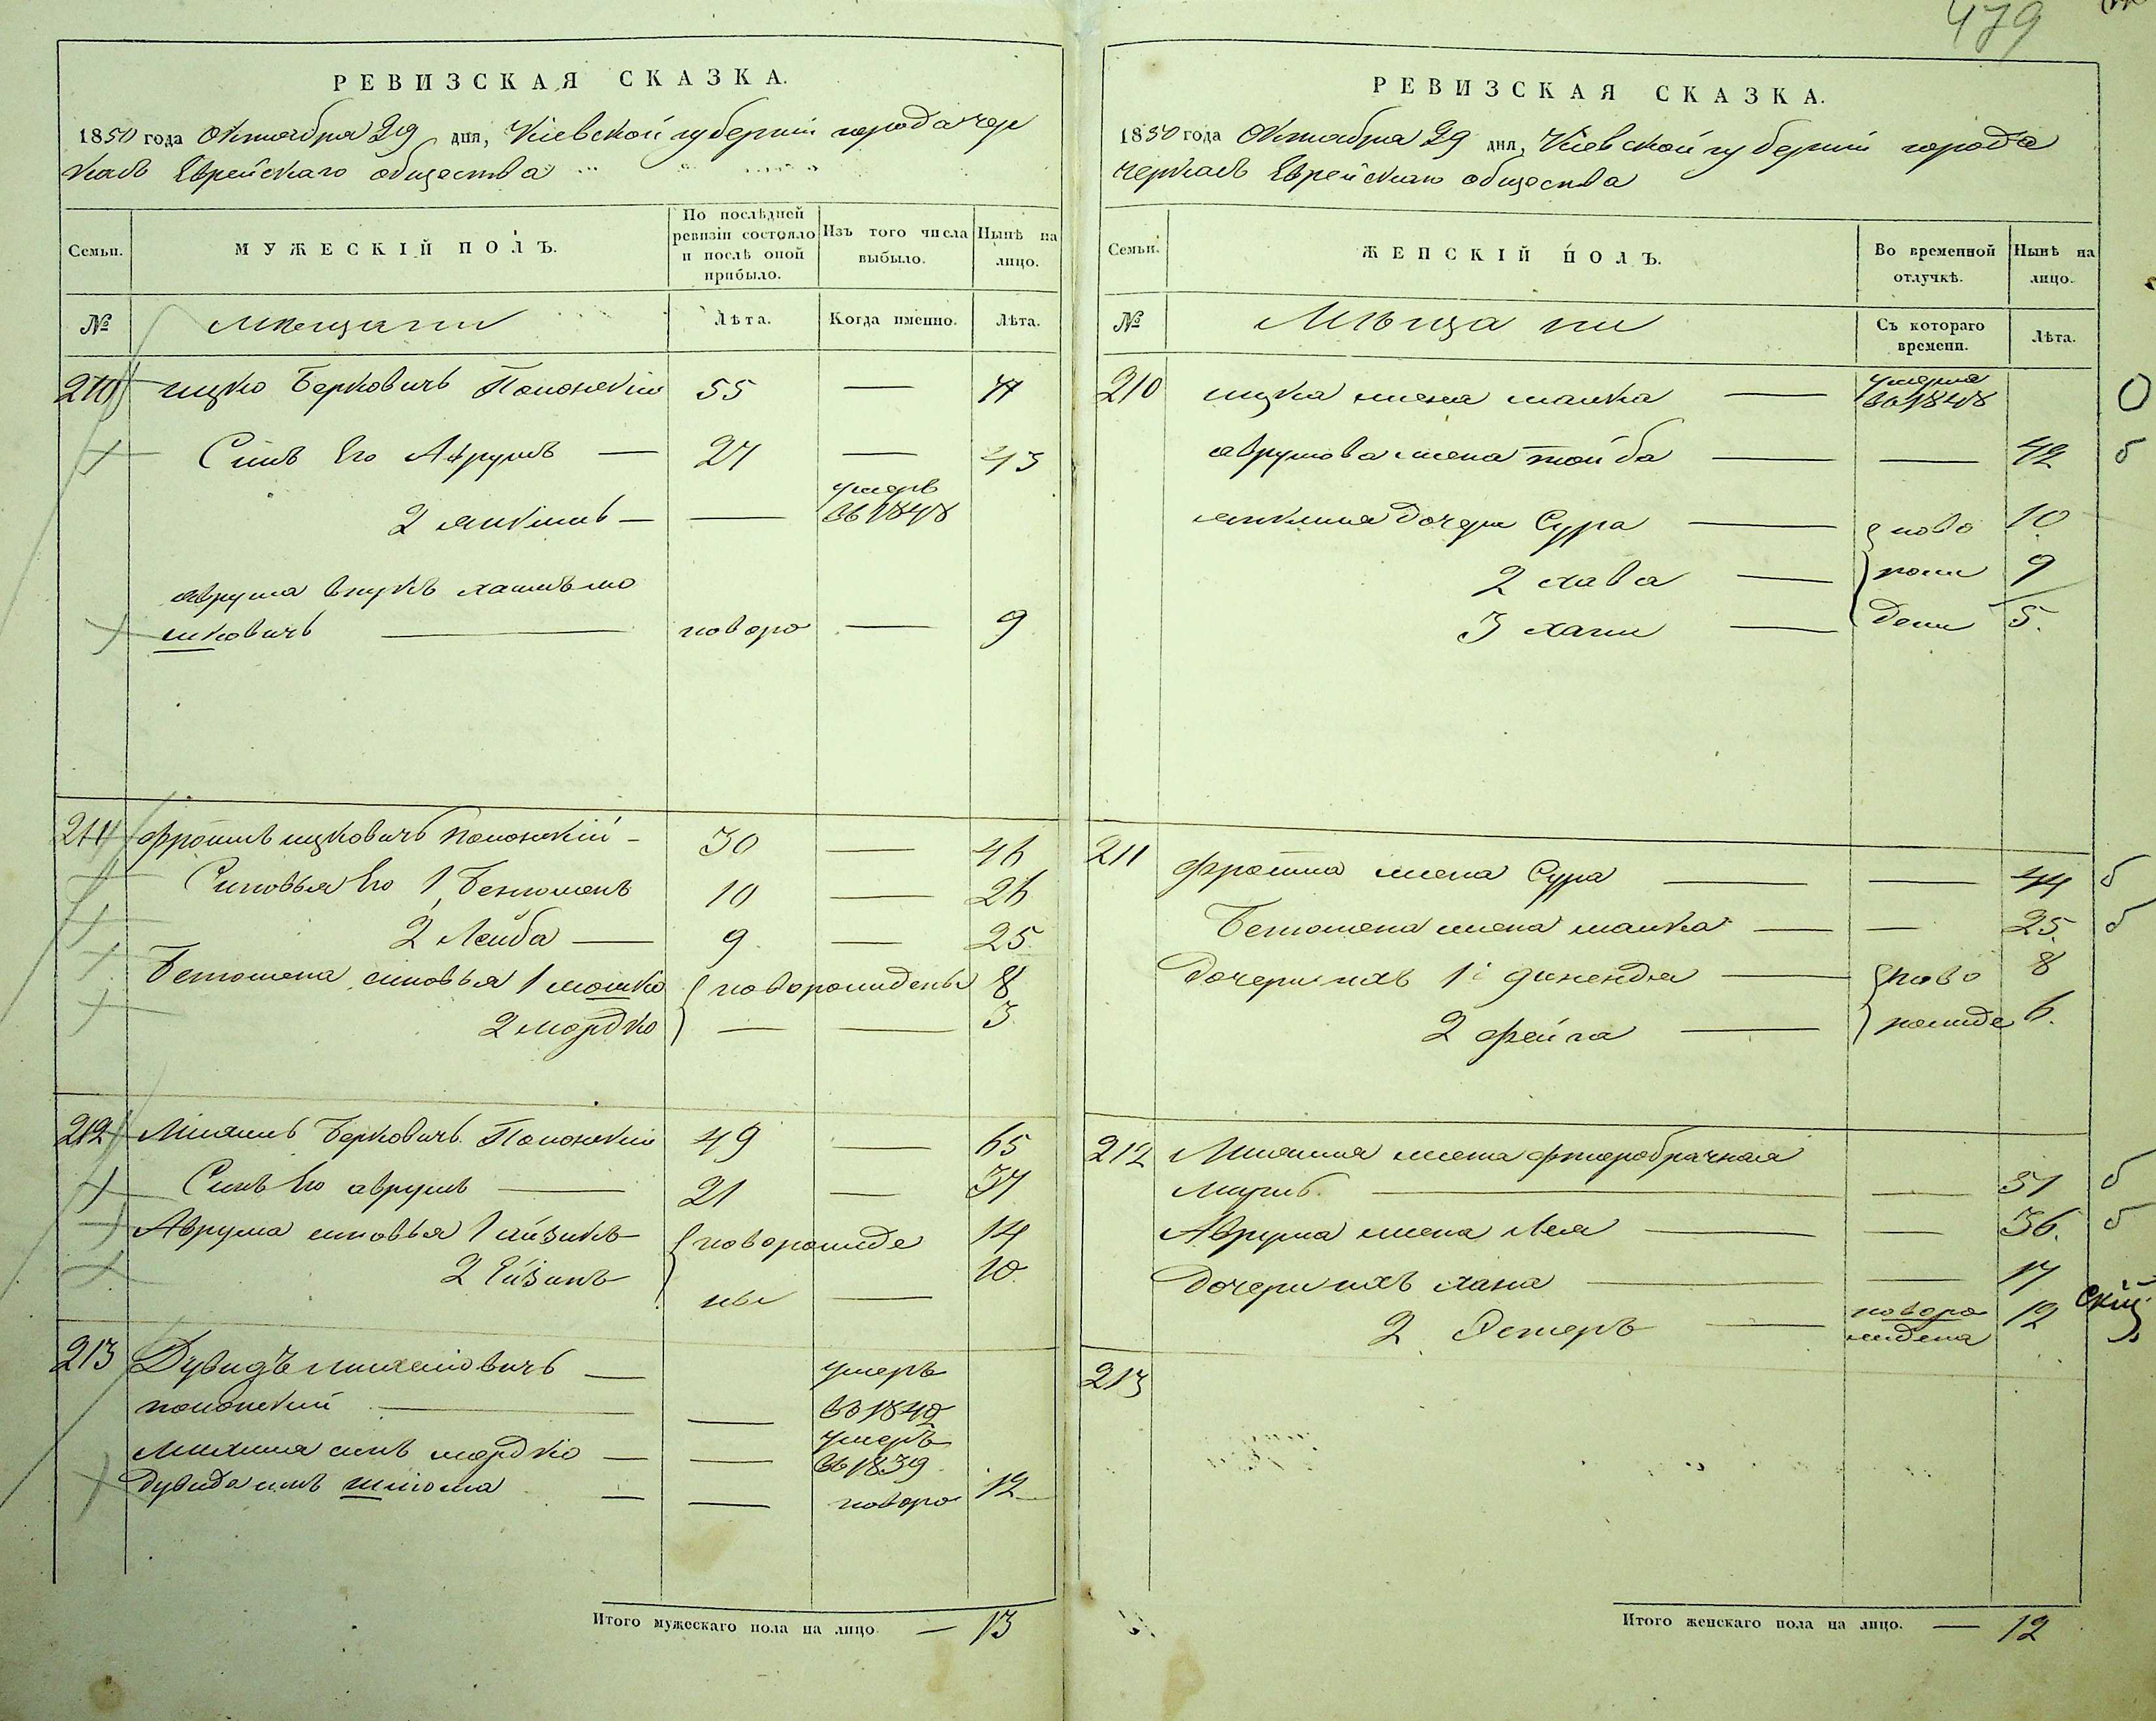 479
РЕВИЗСКАЯ СКАЗКА.
1850 года Октября 29 дня, Кіевской губерніи города Чер
касъ Еврейскаго общества
Семьи.
МУЖЕСКІЙ ПОЛЪ.
По послѣдней ревизіи состояло и послѣ оной прибыло.
Изъ того числа выбыло.
Нынѣ на лицо.
№
Мѣщани
Лѣта.
Когда именно.
Лѣта.
210 ицко Берковичъ Полонскій 55 — 71
Синъ Его Аврумъ — 27 — 43
2 — — умеръ въ 1848
аврума внукъ
новоро — 9
211 Фроимъ ицковичъ полонскій — 30 — 46
Синовья Его 1 Бенюменъ 10 — 26
2 Лейба — 9 — 25
Бенюмена синовья 1 мошко новорожидены 8
2 мордко — — 3
212 Берковичъ Полонскій 49 — 65
Синъ Его аврумъ — 21 — 37
Аврума синовья 1 айзикъ новорожиде 14
2 ны — 10
213 Дувидъ — умеръ
полонскій — — въ 1840
синъ мордко — — умеръ въ 1839
дувида синъ шліома — — новоро 12
Итого мужескаго пола на лицо — 13
РЕВИЗСКАЯ СКАЗКА.
1850 года Октября 29 дня, Кіевской губерніи города
Черкасъ Еврейскаго общества
Семьи.
ЖЕНСКІЙ ПОЛЪ.
Во временной отлучкѣ.
Нынѣ на лицо.
№
Мѣщани
Съ котораго времени.
Лѣта.
210 ицка жена малка — умерла въ 1848 0
аврумова жена тойба — — 42 б
дочери Сура — ново 10
2 хава — рож 9
3 хаги — дени 5.
211 Фроима жена Сура — — 44 б
Бенюмена жена малка — — 25 б
Дочери ихъ 1 — ново 8
2 фейга — рожиде 6.
212 жена фтеробрачная
— — 51 б
Аврума жена Лея — — 36. б
Дочери ихъ хана — — 17
2 Эстеръ — новоро ждена 12
213
Итого женскаго пола на лицо. — 12